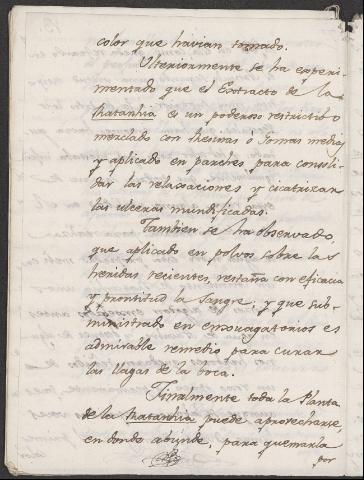 color que havian tomado.
Ulteriormente se ha experi-
mentado que el Extracto de la
Ratanhia es un poderoso restrictibo
mezclado con Resinas ó Gomas
y aplicado en parches para consoli-
dar las relaxaciones y cicatrizar
las ulceras mundificadas.
Tambien se ha observado,
que aplicado en polvos sobre las
heridas recientes, restaña con eficacia
y prontitud la Sangre; y que sub-
ministrado en enxuagatorios es
admirable remedio para curar
las llagas de la boca.
Finalmente toda la Planta
de la Ratanhia puede aprovecharse,
en donde abunde, para quemarla
por